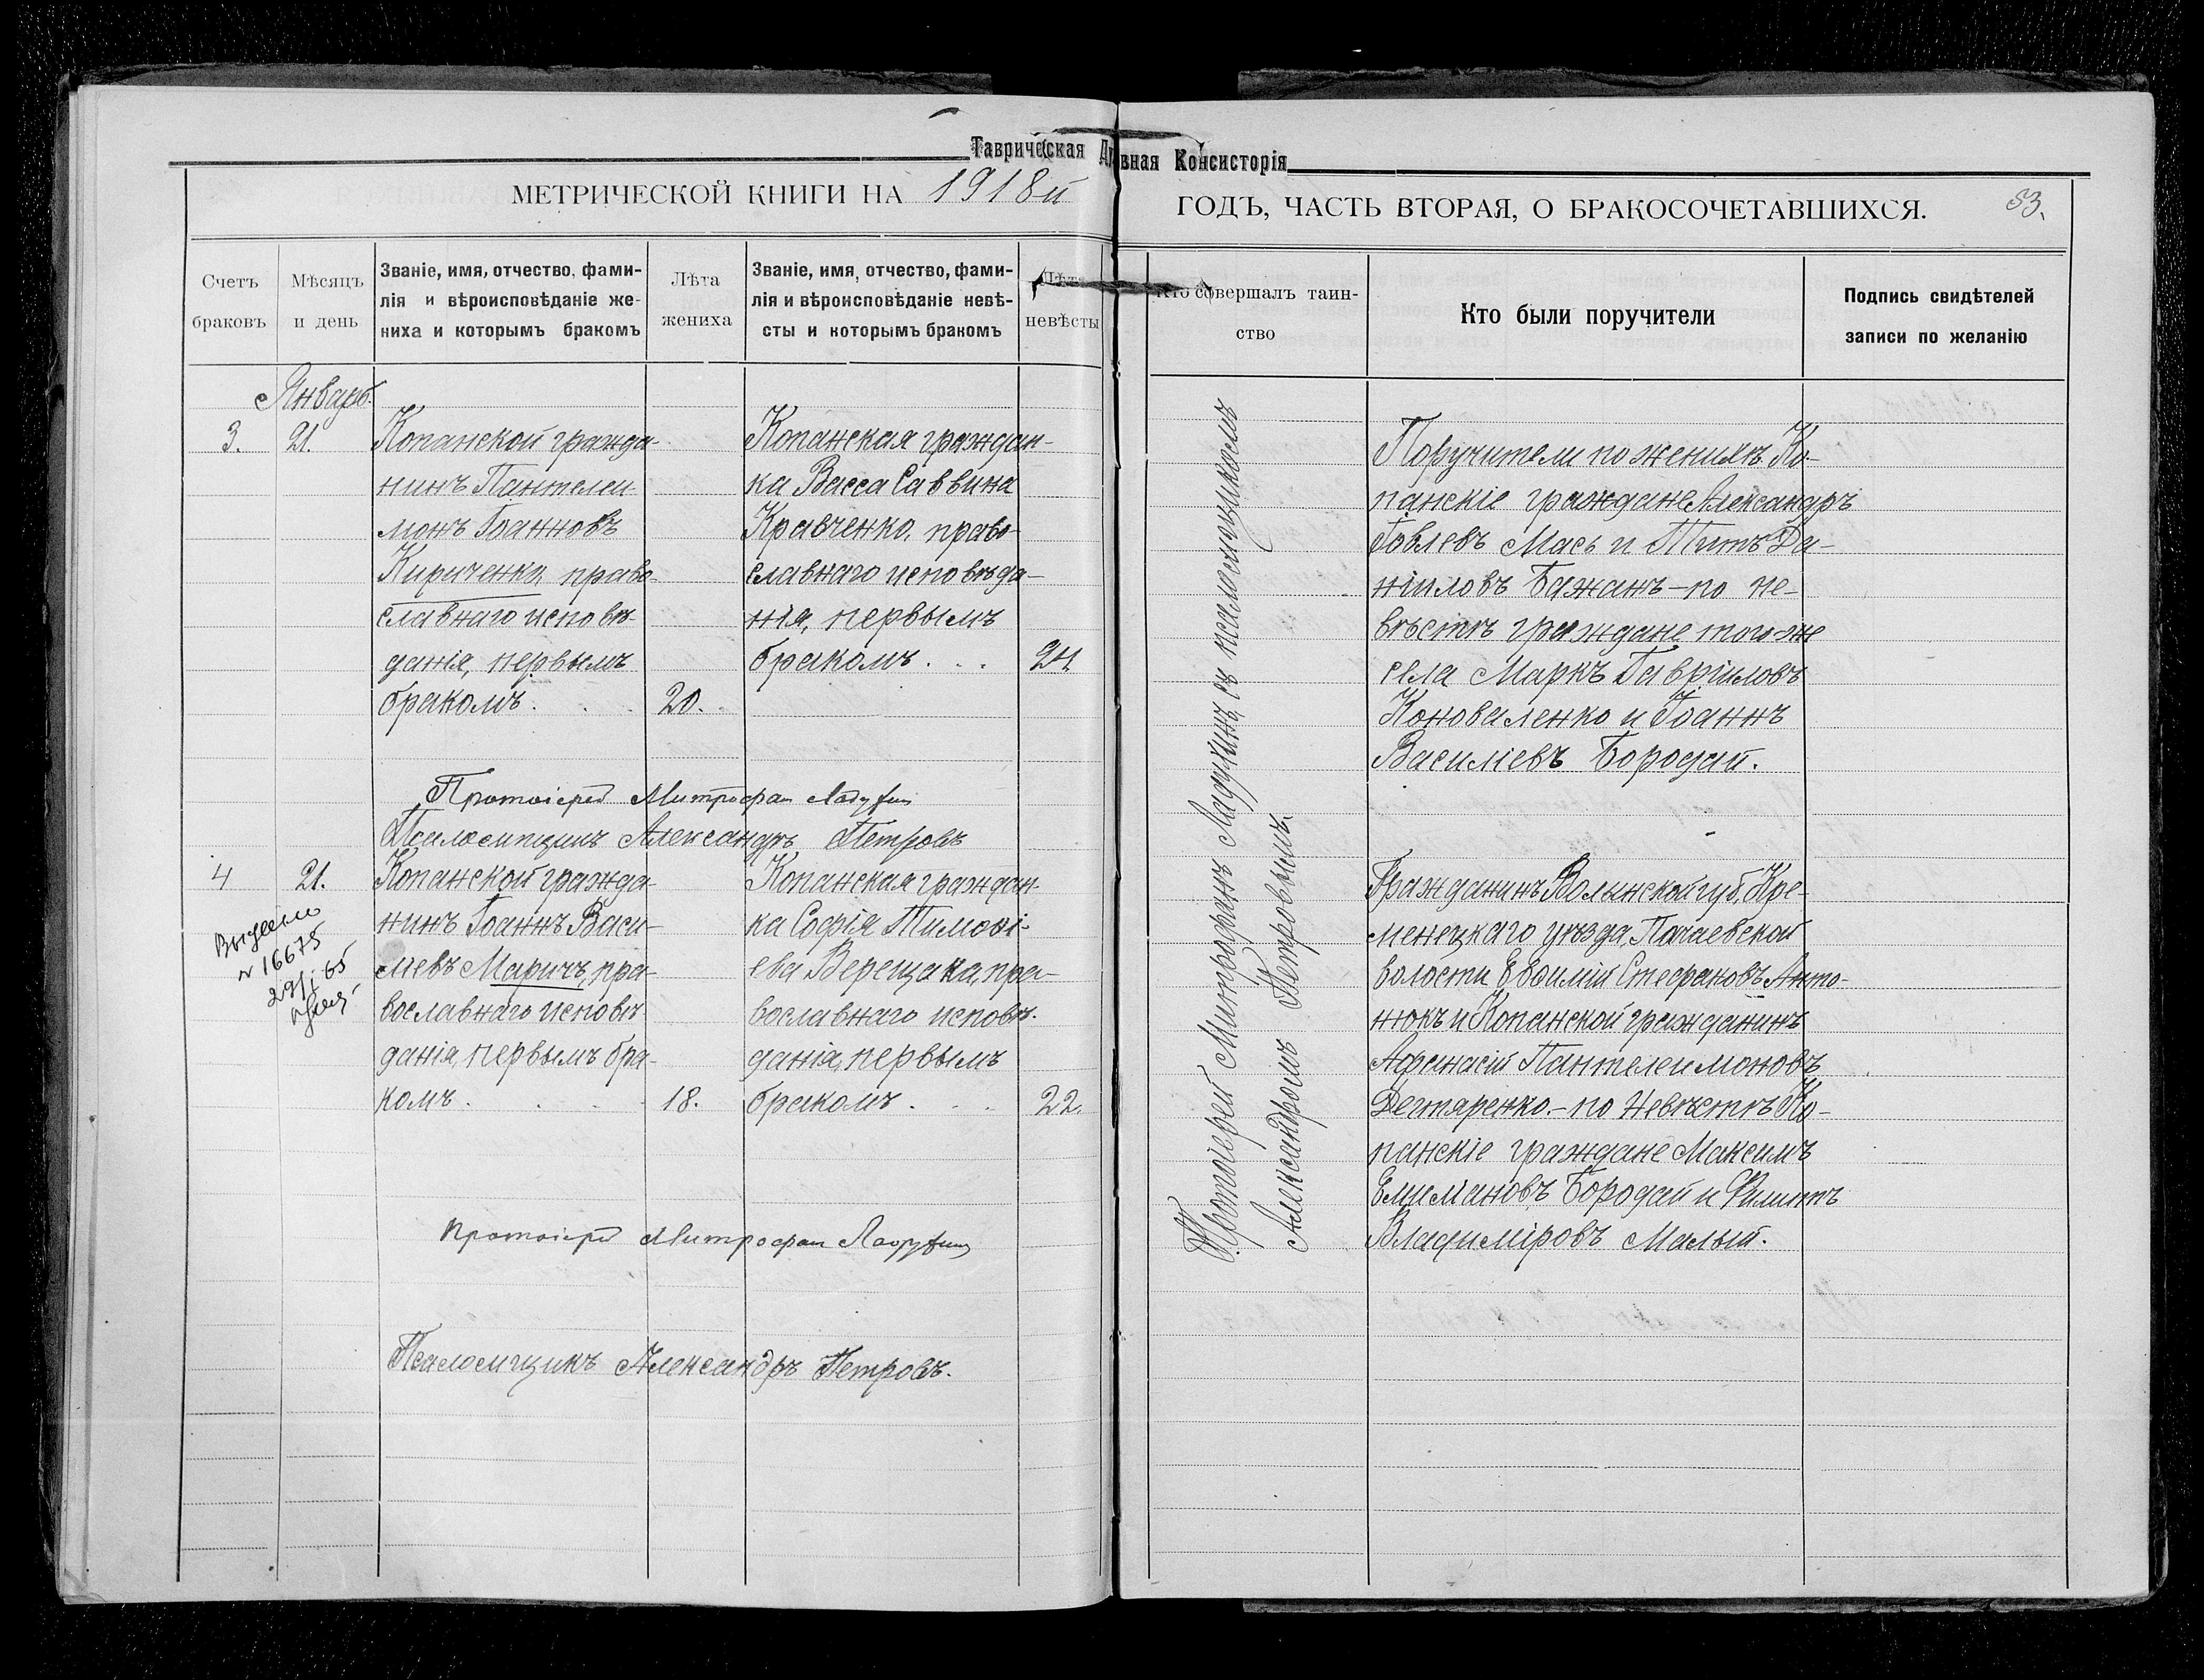 Таврическая Ду
вная Консисторія
МЕТРИЧЕСКОЙ КНИГИ НА 1918й
ГОДЪ, ЧАСТЬ ВТОРАЯ, О БРАКОСОЧЕТАВШИХСЯ.
53.
Счетъ
браковъ
Мѣсяцъ
и день
Званіе, имя, отчество, фами-
лія и вѣроисповѣданіе же-
ниха и которымъ бракомъ
Лѣта
жениха
Званіе, имя, отчество, фами-
лія и вѣроисповѣданіе невѣ-
сты и которымъ бракомъ
Лѣта
невѣсты
Кто совершалъ таин-
ство
Кто были поручители
Подпись свидѣтелей
записи по желанію
Январь.
3.
21.
Копанской гражда-
нинъ Пантелеи-
монъ Іоанновъ
Кириченко, право-
славнаго исповѣ-
данія, первымъ
бракомъ . . .
20.
Копанская граждан-
ка Васса Саввина
Кравченко, право-
славнаго исповѣда-
нія, первымъ
бракомъ . . .
24.
Протоіерей Митрофанъ Ладухинъ съ псаломщикомъ
Александромъ Петровымъ.
Поручители по женихѣ Ко-
панскіе граждане Александръ
Іовлевъ Мась и Титъ Да-
ніиловъ Бажанъ – по не-
вѣстѣ граждане того же
села Маркъ Гавріиловъ
Коноваленко и Іоаннъ
Василіевъ Бородай.
Протоіерей Митрофан Ладухин
Псаломщикъ Александръ Петровъ
4
21.
Выдано
N 16675
29/I 65
Копанской гражда-
нинъ Іоаннъ Васи-
ліевъ Маричъ, пра-
вославнаго исповѣ-
данія, первымъ бра-
комъ . . . .
18.
Копанская граждан-
ка Софія Тимоѳі-
ева Верещака, пра-
вославнаго исповѣ-
данія, первымъ
бракомъ . . .
22.
Гражданинъ Волынской губ., Кре-
менецкаго уѣзда, Почаевской
волости Евѳимій Стефановъ Анто-
нюкъ и Копанской гражданинъ
Афанасій Пантелеимоновъ
Дегтяренко. – по невѣстѣ Ко-
панскіе граждане Максимъ
Емиліановъ Бородай и Филиппъ
Владиміровъ Малый.
Протоіерей Митрофан Ладухин
Псаломщикъ Александръ Петровъ.